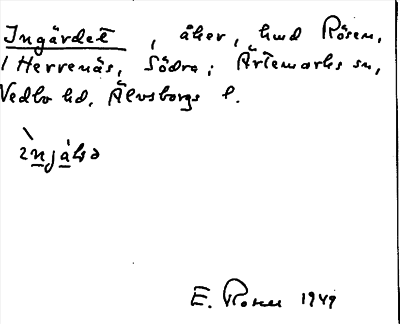 Ingärdet, åker, hmd Rösen,
1 Herrenäs, Södra; Ärtemarks sn,
Vedbo hd, Älvsborgs l.
E. Rosen 1949